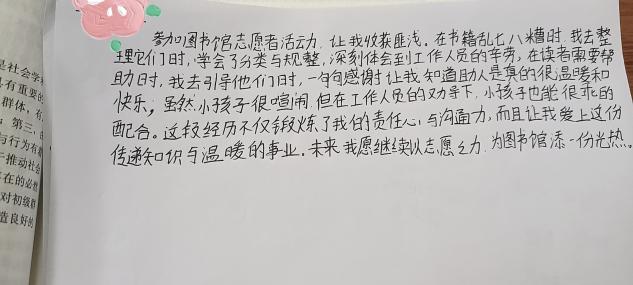 参加图书馆志愿者活动力,让我收获匪浅。在书籍乱七八糟时,我去整
理它们时,学会了分类与规整,深刻体会到工作人员的辛劳,在读者需要帮
助时,我去引导他们时,一句句感谢让我知道助人是真的很温暖和
快乐,虽然小孩子很喧闹,但在工作人员的劝导下,小孩子也能很乖的
配合。这段经历不仅锻炼了我的责任心与沟通力,而且让我爱上这份
传递知识与温暖的事业。未来我愿继续以志愿之力,为图书馆添一份光热。
是社会学科
具有重要的
群体,有
第三,
与行为有
于推动社会
存在的必
对初级群
造良好的